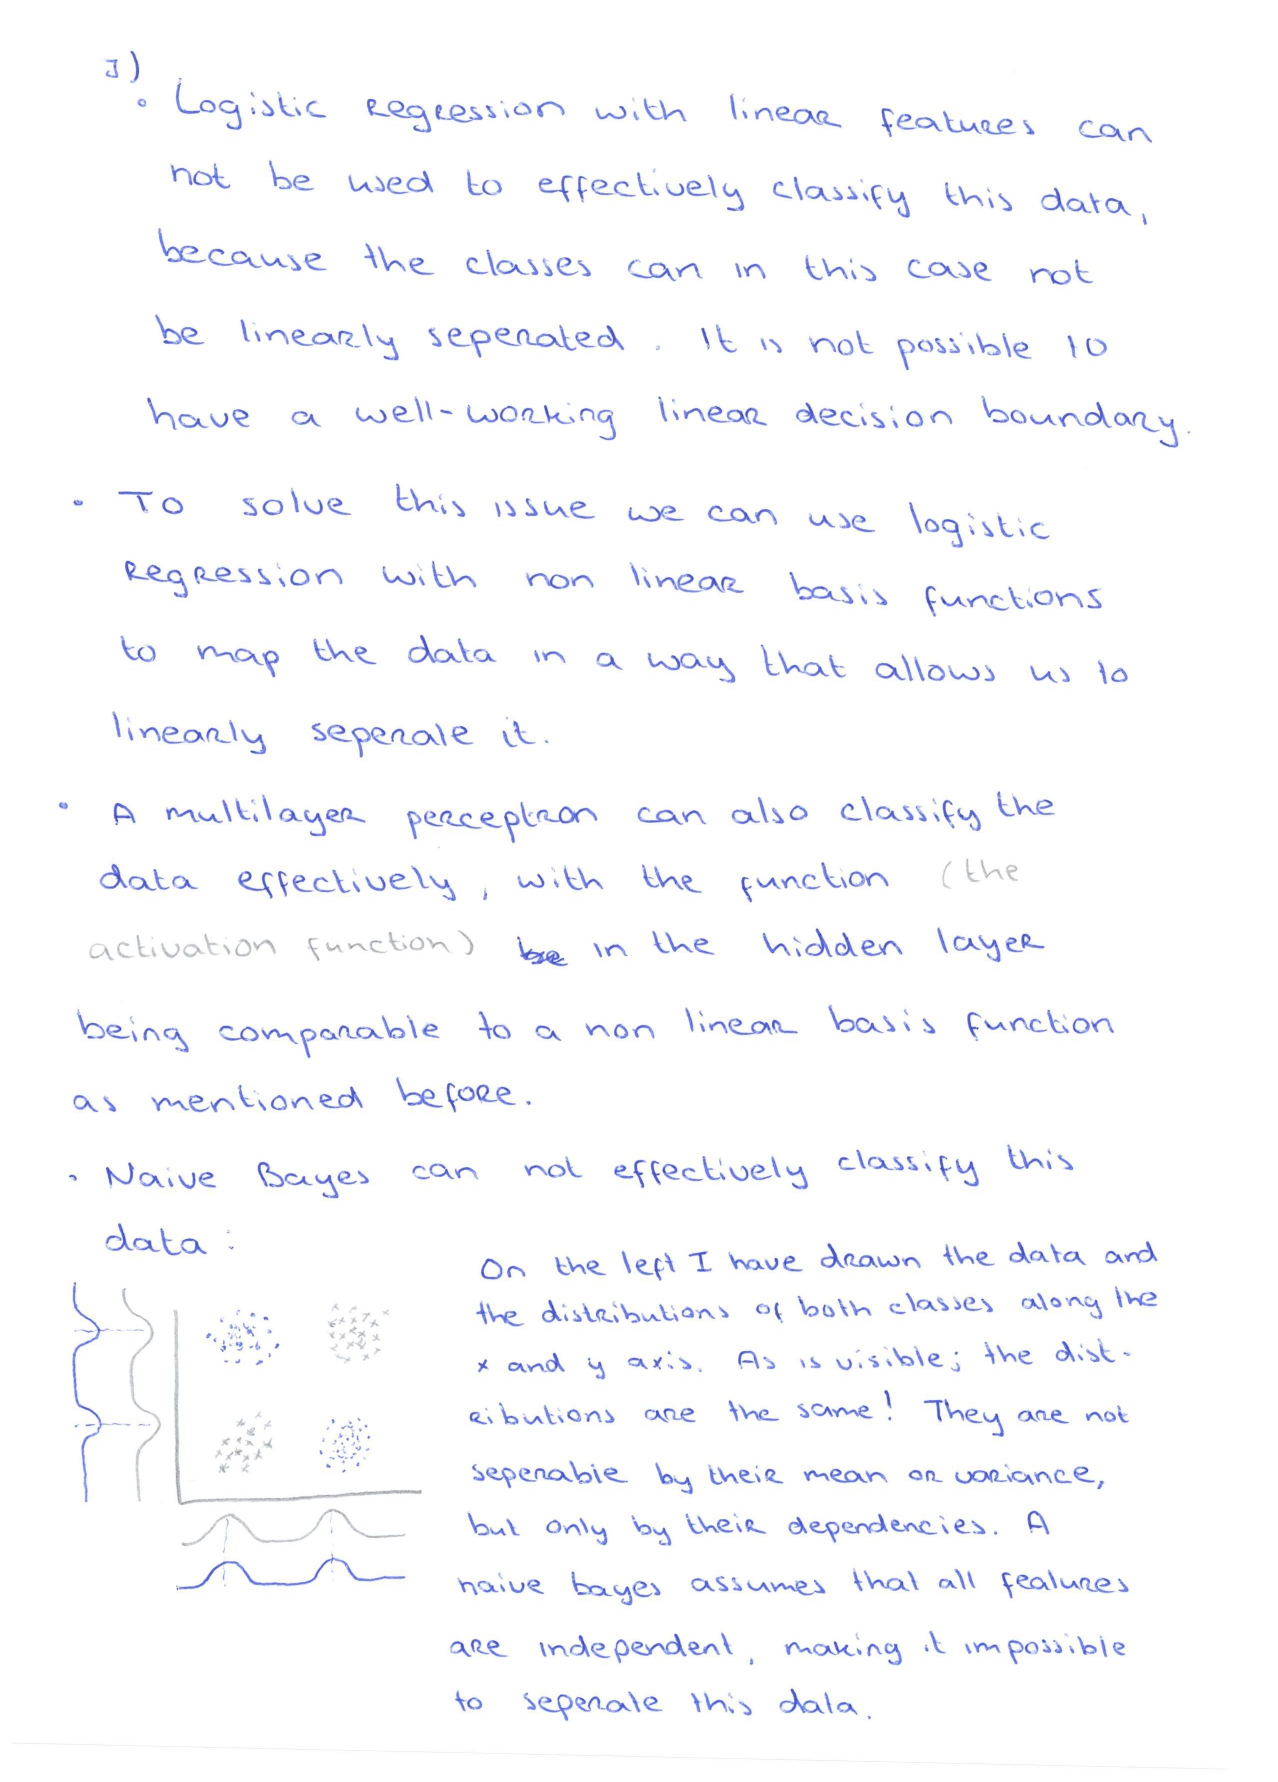 J)
• Logistic Regression with linear features can
not be used to effectively classify this data,
because the classes can in this case not
be linearly seperated. It is not possible to
have a well-working linear decision boundary.
• To solve this issue we can use logistic
Regression with non linear basis functions
to map the data in a way that allows us to
linearly seperate it.
• A multilayer perceptron can also classify the
data effectively, with the function (the
activation function) be in the hidden layer
being comparable to a non linear basis function
as mentioned before.
• Naive Bayes can not effectively classify this
data:
On the left I have drawn the data and
the distributions of both classes along the
x and y axis. As is visible; the dist-
ributions are the same! They are not
seperable by their mean or variance,
but only by their dependencies. A
naive bayes assumes that all features
are independent, making it impossible
to seperate this data.